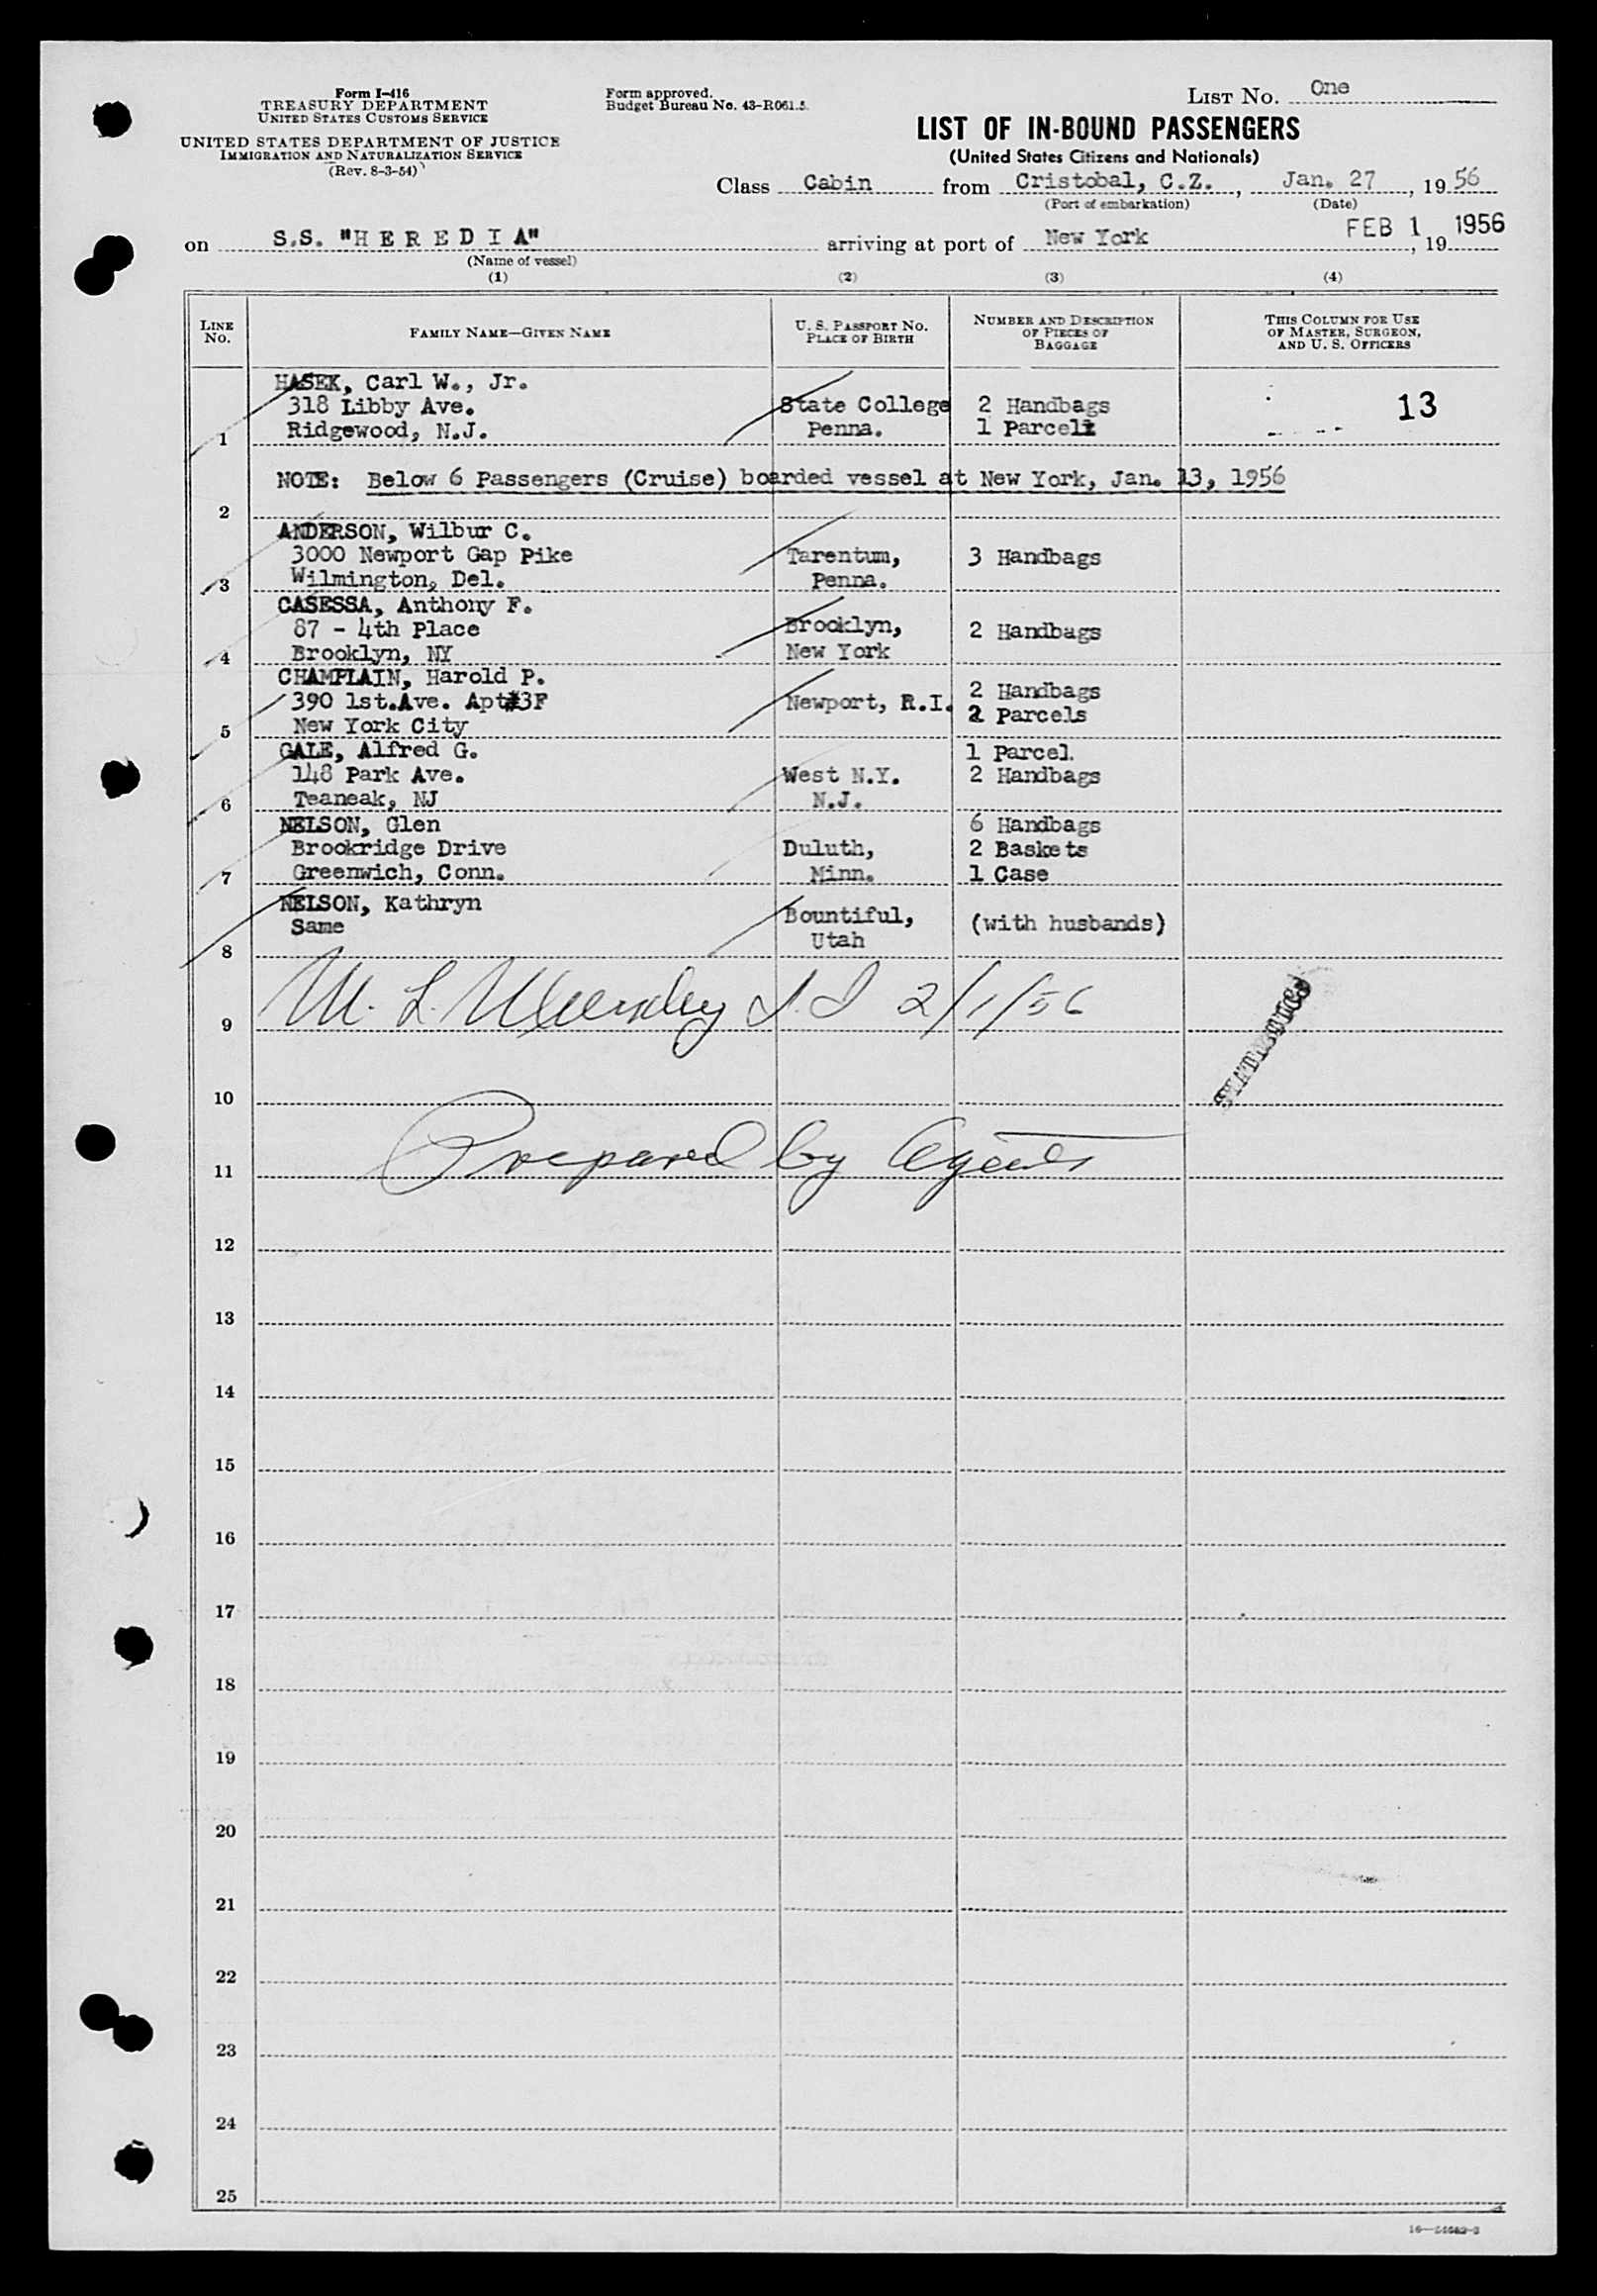 Form I-416
TREASURY DEPARTMENT
UNITED STATES CUSTOMS SERVICE
UNITED STATES DEPARTMENT OF JUSTICE
IMMIGRATION AND NATURALIZATION SERVICE
(Rev. 8-3-54)
Form approved.
Budget Bureau No. 43-R061.5.
LIST NO. One
LIST OF IN-BOUND PASSENGERS
(United States Citizens and Nationals)
Class Cabin from Cristobal, C.Z., Jan. 27, 1956
(Port of embarkation) (Date)
on S.S. "H E R E D I A" arriving at port of New York FEB 1, 19 1956
(Name of vessel)
(1) (2) (3) (4)
LINE NO. FAMILY NAME—GIVEN NAME U. S. PASSPORT NO. PLACE OF BIRTH NUMBER AND DESCRIPTION OF PIECES OF BAGGAGE THIS COLUMN FOR USE OF MASTER, SURGEON, AND U. S. OFFICERS
HASEK, Carl W., Jr.
318 Libby Ave. State College 2 Handbags 13
1 Ridgewood, N.J. Penna. 1 Parcel
NOTE: Below 6 Passengers (Cruise) boarded vessel at New York, Jan. 13, 1956
2
ANDERSON, Wilbur C.
3000 Newport Gap Pike Tarentum, 3 Handbags
3 Wilmington, Del. Penna.
CASESSA, Anthony F.
87 - 4th Place Brooklyn, 2 Handbags
4 Brooklyn, NY New York
CHAMPLAIN, Harold P. 2 Handbags
390 1st.Ave. Apt#3F Newport, R.I. 2 Parcels
5 New York City
GALE, Alfred G. 1 Parcel.
148 Park Ave. West N.Y. 2 Handbags
6 Teaneak, NJ N.J.
NELSON, Glen 6 Handbags
Brookridge Drive Duluth, 2 Baskets
7 Greenwich, Conn. Minn. 1 Case
NELSON, Kathryn Bountiful, (with husbands)
Same Utah
8
9 M. L. 2/1/56
10
11 Prepared by Agents
12
13
14
15
16
17
18
19
20
21
22
23
24
25